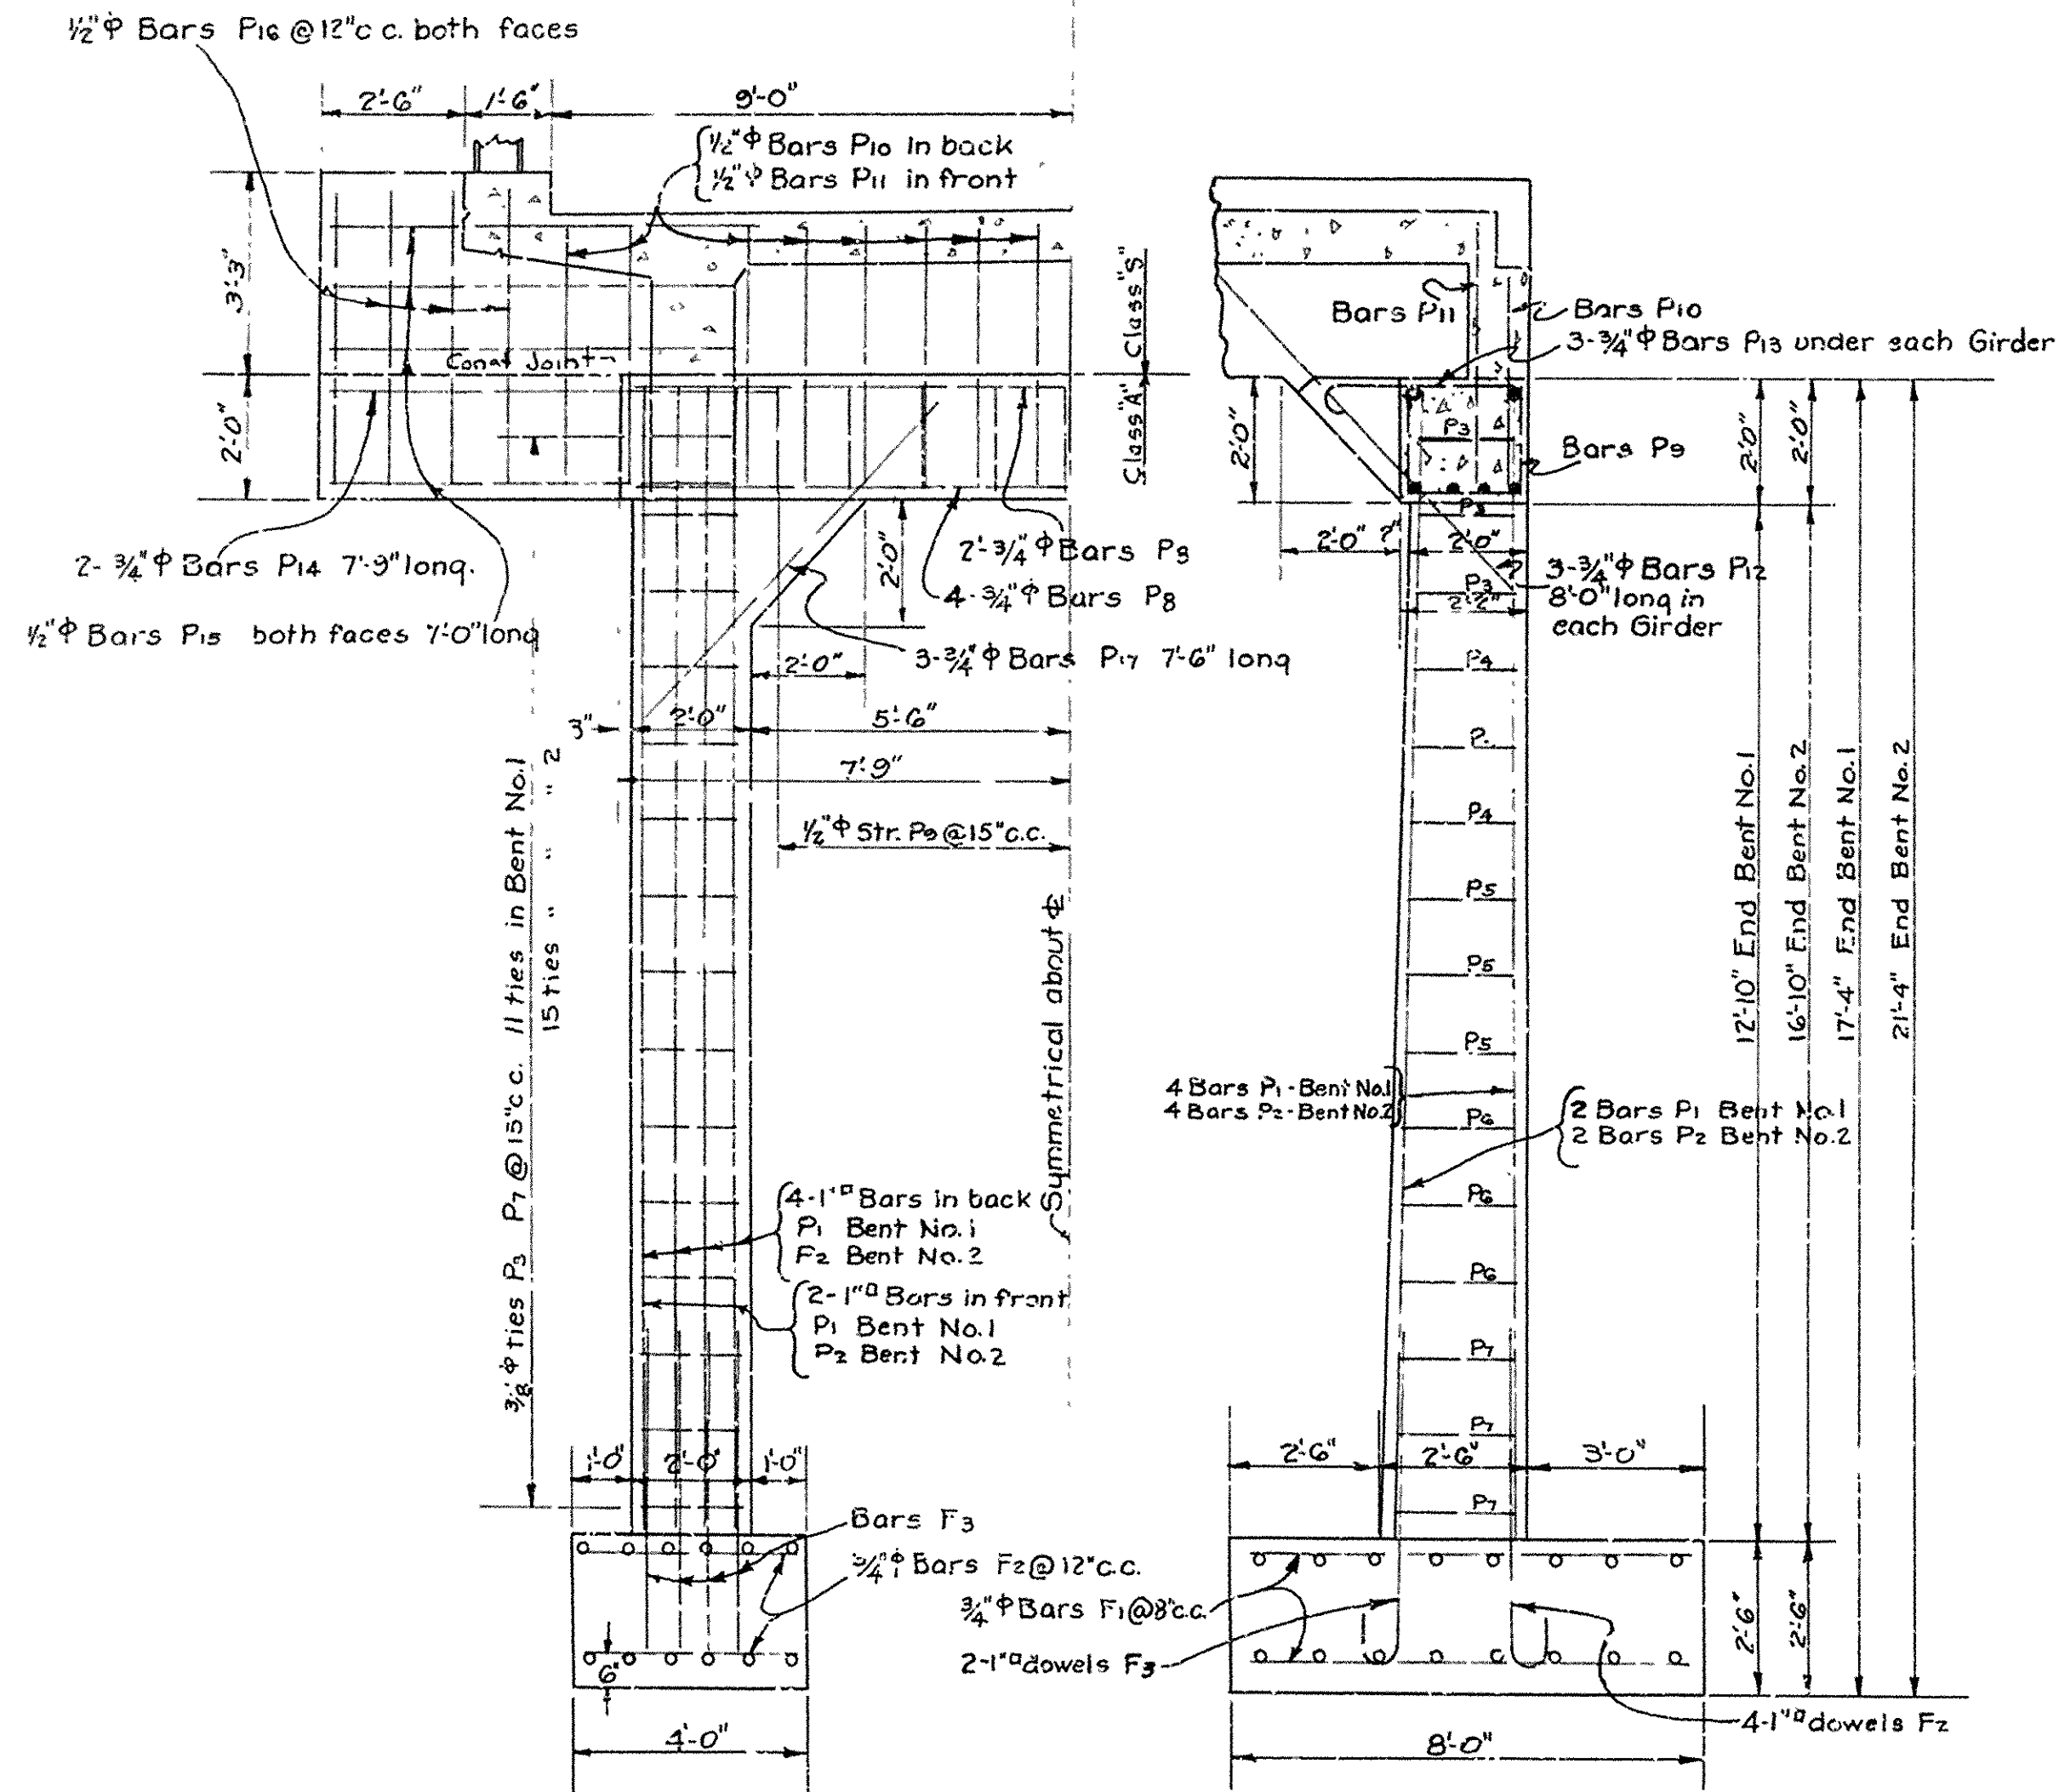 ½"ϕ Bars P16 @ 12"c c. both faces
2'-6"
1'-6"
9'-0"
½"ϕ Bars P10 in back
½"ϕ Bars P11 in front
3'-3"
2'-0"
Const Joint
Class "S"
Class "A"
2-¾"ϕ Bars P14 7'-9" long.
½"ϕ Bars P15 both faces 7'-0" long
2'-0"
2'-¾"ϕ Bars P8
4-¾"ϕ Bars P8
3-¾"ϕ Bars P17 7'-6" long
2'-0"
3"
2'-0"
5'-6"
7'-9"
½"ϕ Str. P9 @ 15"c.c.
Symmetrical about ℄
⅜"ϕ ties P3 P7 @ 15"c c. 11 ties in Bent No.1
15 ties " " " 2
4-1"▫ Bars in back
P1 Bent No.1
F2 Bent No.2
2-1"▫ Bars in front
P1 Bent No.1
P2 Bent No.2
1'-0"
2'-0"
1'-0"
Bars F3
¾"ϕ Bars F2 @ 12"c.c.
6"
4'-0"
Bars P11
Bars P10
3-¾"ϕ Bars P13 under each Girder
P3
Bars P9
2'-0"
2'-0"
2'-0"
2'-0"
2"
2'-0"
P3
P3
2'-2"
3-¾"ϕ Bars P12
8'-0" long in
each Girder
P4
P.
P4
P5
P5
P5
P6
P6
P6
P7
P7
P7
4 Bars P1-Bent No.1
4 Bars P2-Bent No.2
2 Bars P1 Bent No.1
2 Bars P2 Bent No.2
12'-10" End Bent No.1
16'-10" End Bent No.2
17'-4" End Bent No.1
21'-4" End Bent No.2
2'-6"
2'-6"
3'-0"
¾"ϕ Bars F1 @ 8"c.c.
2-1"▫ dowels F3
2'-6"
2'-6"
4-1"▫ dowels F2
8'-0"